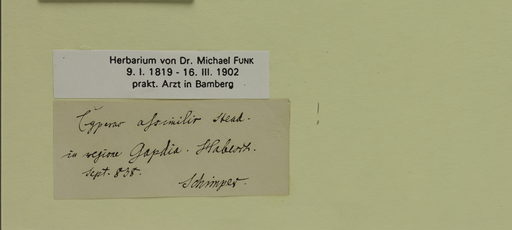 Herbarium von Dr. Michael FUNK
9. I. 1819 - 16. III. 1902
prakt. Arzt in Bamberg
Cyperus assimilis Steud.
in regione Gapdia. Habesch.
Sept. 838.
Schimper.